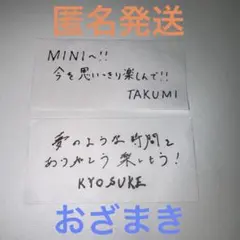 匿名発送
MINIへ!!
今を思いっきり楽しんで!!
TAKUMI
夢のような時間を
ありがとう 楽しもう!
KYOSUKE
おざまき